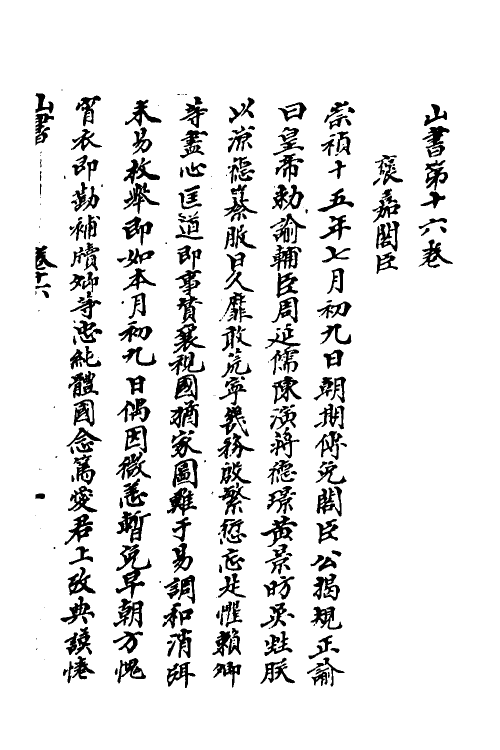 山書第十六卷
褒嘉閣臣
崇禎十五年七月初九日朝期傳免閣臣公揭規正諭
曰皇帝勅諭輔臣周延儒陳演蔣德璟黄景昉吳甡朕
以涼德纂服日久靡敢荒寧幾務殷繁愆忘是懼賴卿
等盡心匡道即事賛襄視國猶家圖難于易調和消弭
未易枚舉即如本月初九日偶因微恙暫免早朝方愧
宵衣即勤補牘卿等忠純體國念篤愛君上攷典謨惓
山書 卷十六